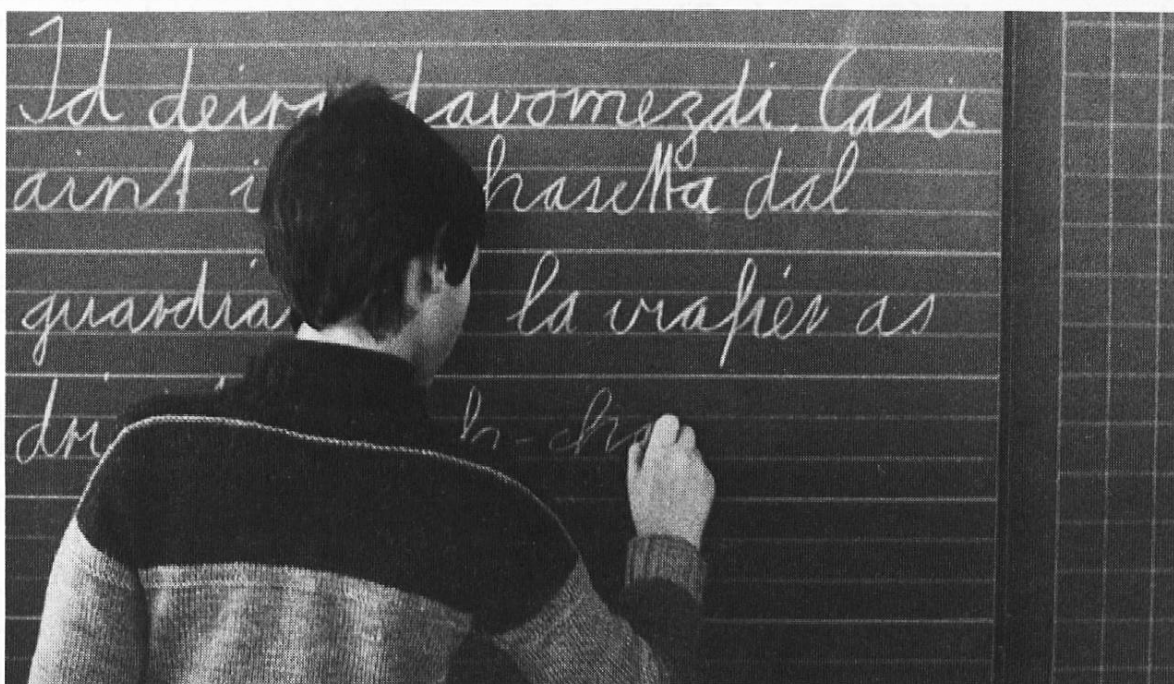 Id deira davomezdi. Casü
aint hasetta dal
guardia la viafier as